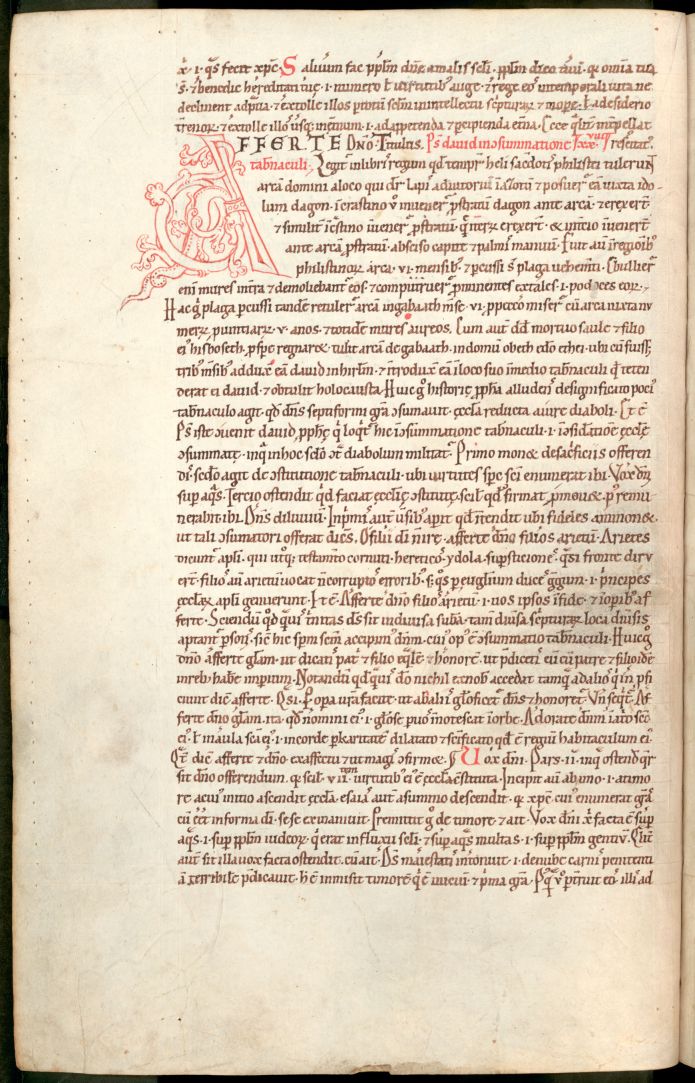 x̄· i· q̄s fecit xp̄c· Saluum fac pp̄lm dn̄e a malis scl̄i· pp̄lm dico tuū· q; omnia tua
s̄· & benedic hereditati tuę· i· numero ł uirtutib; auge· & rege eos in temporali uita ne
declinent ad p̄ua· & extolle illos
& extolle illos usq; in et̄num· i· ad appetenda & percipienda et̄na·
AFFERTE DNO· Titulus· Ps̄ dauid in ɔsummatione
tab̄naculi· Legit̄ in libris regum qd̄ temp̄r heli sacdot̄ philistei tulerun̄t
arcā domini a loco qui dr̄ lapis adiutorii i azotū & posuer̄ eā iuxta ido-
lum dagon· i crastino ṽ inuener̄ p̄stratū dagon ante arcā· & erexer̄t
& simili͛t i c̄stino inuener̄ p̄stratū q̄ iterū erexer̄t· & tertio inuener̄t
ante arcā p̄stratū· absciso capite & palmis manuū· Fuit aū i regioīb;
philistinorū arca· vi· mensib; & p̄cussi s̄ plaga uehem̄ti· Ebullier̄
enī mures in tr̄a & demoliebant̄ eos· & computruer̄ p̄minentes extales· i· podices eor̄·
Hac g̊ plaga p̄cussi tandē retuler̄ arcā in gabaath· cū arca iuxta nu
merū p̄uinciarū· v· anos· & totidē mures aureos· Cum aut̄ dd̄ mortuo saule & filio
ei; hisboseth· p̄spe regnar&· tulit arcā de gabaath· in domū obeth edō ethei· ubi cū fuiss&
trib; m̄sib; adduxit eā dauid in hirlm̄· & int̄roduxit eā i loco suo i medio tab̄naculi q̄ teten
derat ei dauid· & obtulit holocausta· Huic g̊ historię pp̄ha alludens de significato poci;
tab̄naculo agit· qd̄ dn̄s septiformi gr̄a ɔsumauit· ęccl̄a reducta a iure diaboli· Et ē
Ps̄ iste ɔuenit dauid pp̄hę q̄ loq̄t̄ hic i ɔsummatione tab̄naculi· i· i ɔfidatiōe ęccl̄ę
ɔsummatę· inq̄ in hoc sclo ɔt̄ diabolum militat̄· Primo mon& de sacrificiis offeren
dis· sc̄do agit de ɔstitutione tab̄naculi· ubi uirtutes sp̄c sc̄i enumerat ibi· Vox dn̄i
sup aq̄s· Tercio ostendit qd̄ faciat ęccl̄ię ɔstitutę· scil̄ qd̄ firmat̄ p̄mou& p̄ remu
nerabit̄ ibi· Dn̄s diluuiū· In p̄mis aut̄ ūsib; aperit qd̄ int̄endit ubi fideles ammon&·
ut tali ɔsumatori offerāt dicēs· O filii dī nr̄i· afferte dn̄o filios arietū· Arietes
dicunt̄ apli· qui utoq; testamento cornuti· hereticos ydola· sup̄sticiones q̄si fronte diru
ert̄· filios aū arietū uocat n̄ corruptos erroribus· s; q̄s p̄ euglium duce gr̄gum· i· p̄ncipes
ęccl̄arū apli genuerunt· It̄ ē· Afferte dn̄o filios arietū· i· uos ipsos i fide· & i opib; af
ferte· Sciendū qd̄ q̄uis t̄nitas dī sit indiuisa suba· tam̄ diuisa sc̄pturar̄ loca diuisis
aptant̄ p̄sonis· sic hic sp̄m sc̄m accipim; dn̄m· cui; op; ē ɔsummatio tab̄naculi· Huic g̊
dn̄o afferte glam̄· ut dicatis pat̄ & filio eq̄lē· & honorē· ut p̄dicetis eū cū patre & filio idē
in reb; habe imperium· Notandū qd̄ q̄uis dn̄o nichil ex nob̄ accedat
ciunt dic̄ afferte· Q̄si· Ex opa ur̄a faciāt· ut ab aliis glorificet̄ dn̄s & honoret̄·
ferte dn̄o gl̄am· ita qd̄ nomini ei;· i· gl̄ose p̄ uos inotescat i orbe· Adorate dn̄m i atrio scō
ei; ł in aula scā ei;· i· in corde p̄ karitatē dilatato & sc̄ificato qd̄ ē regiū habitaculum ei;
dic̄ afferte & dn̄o· ex affectu & ut magis ɔfirm&· ¶ Vox dn̄i· Pars· ii· in qua ostendit̄ cur
sit dn̄o offerendum· q; scil̄· vii tem· uirtutib; ei; ē ęccl̄a ɔstituta· Incipit aū ab imo· i· a timo
re a cui; initio ascendit ęccl̄a· esaias aut̄ a summo descendit· q; xp̄c cui; enumerat gr̄ās
cū eēt in forma dī· sese exinaniuit· Premittit g̊ de timore & ait· Vox dn̄i x̄ facta ē sup
aq̄s· i· sup pp̄lm iudeorū· q̄ erat in fluxu scl̄i· & sup aq̄s multas· i· sup pp̄lm gentiū·
aut̄ sit illa uox facta ostendit· cū ait· Ds̄ maiestatis intonuit· i· de nube carnis penitenti
ā terribilē p̄dicauit· h̄ ē inmisit timorē q̄ ē iniciū & p̄ma gr̄a·